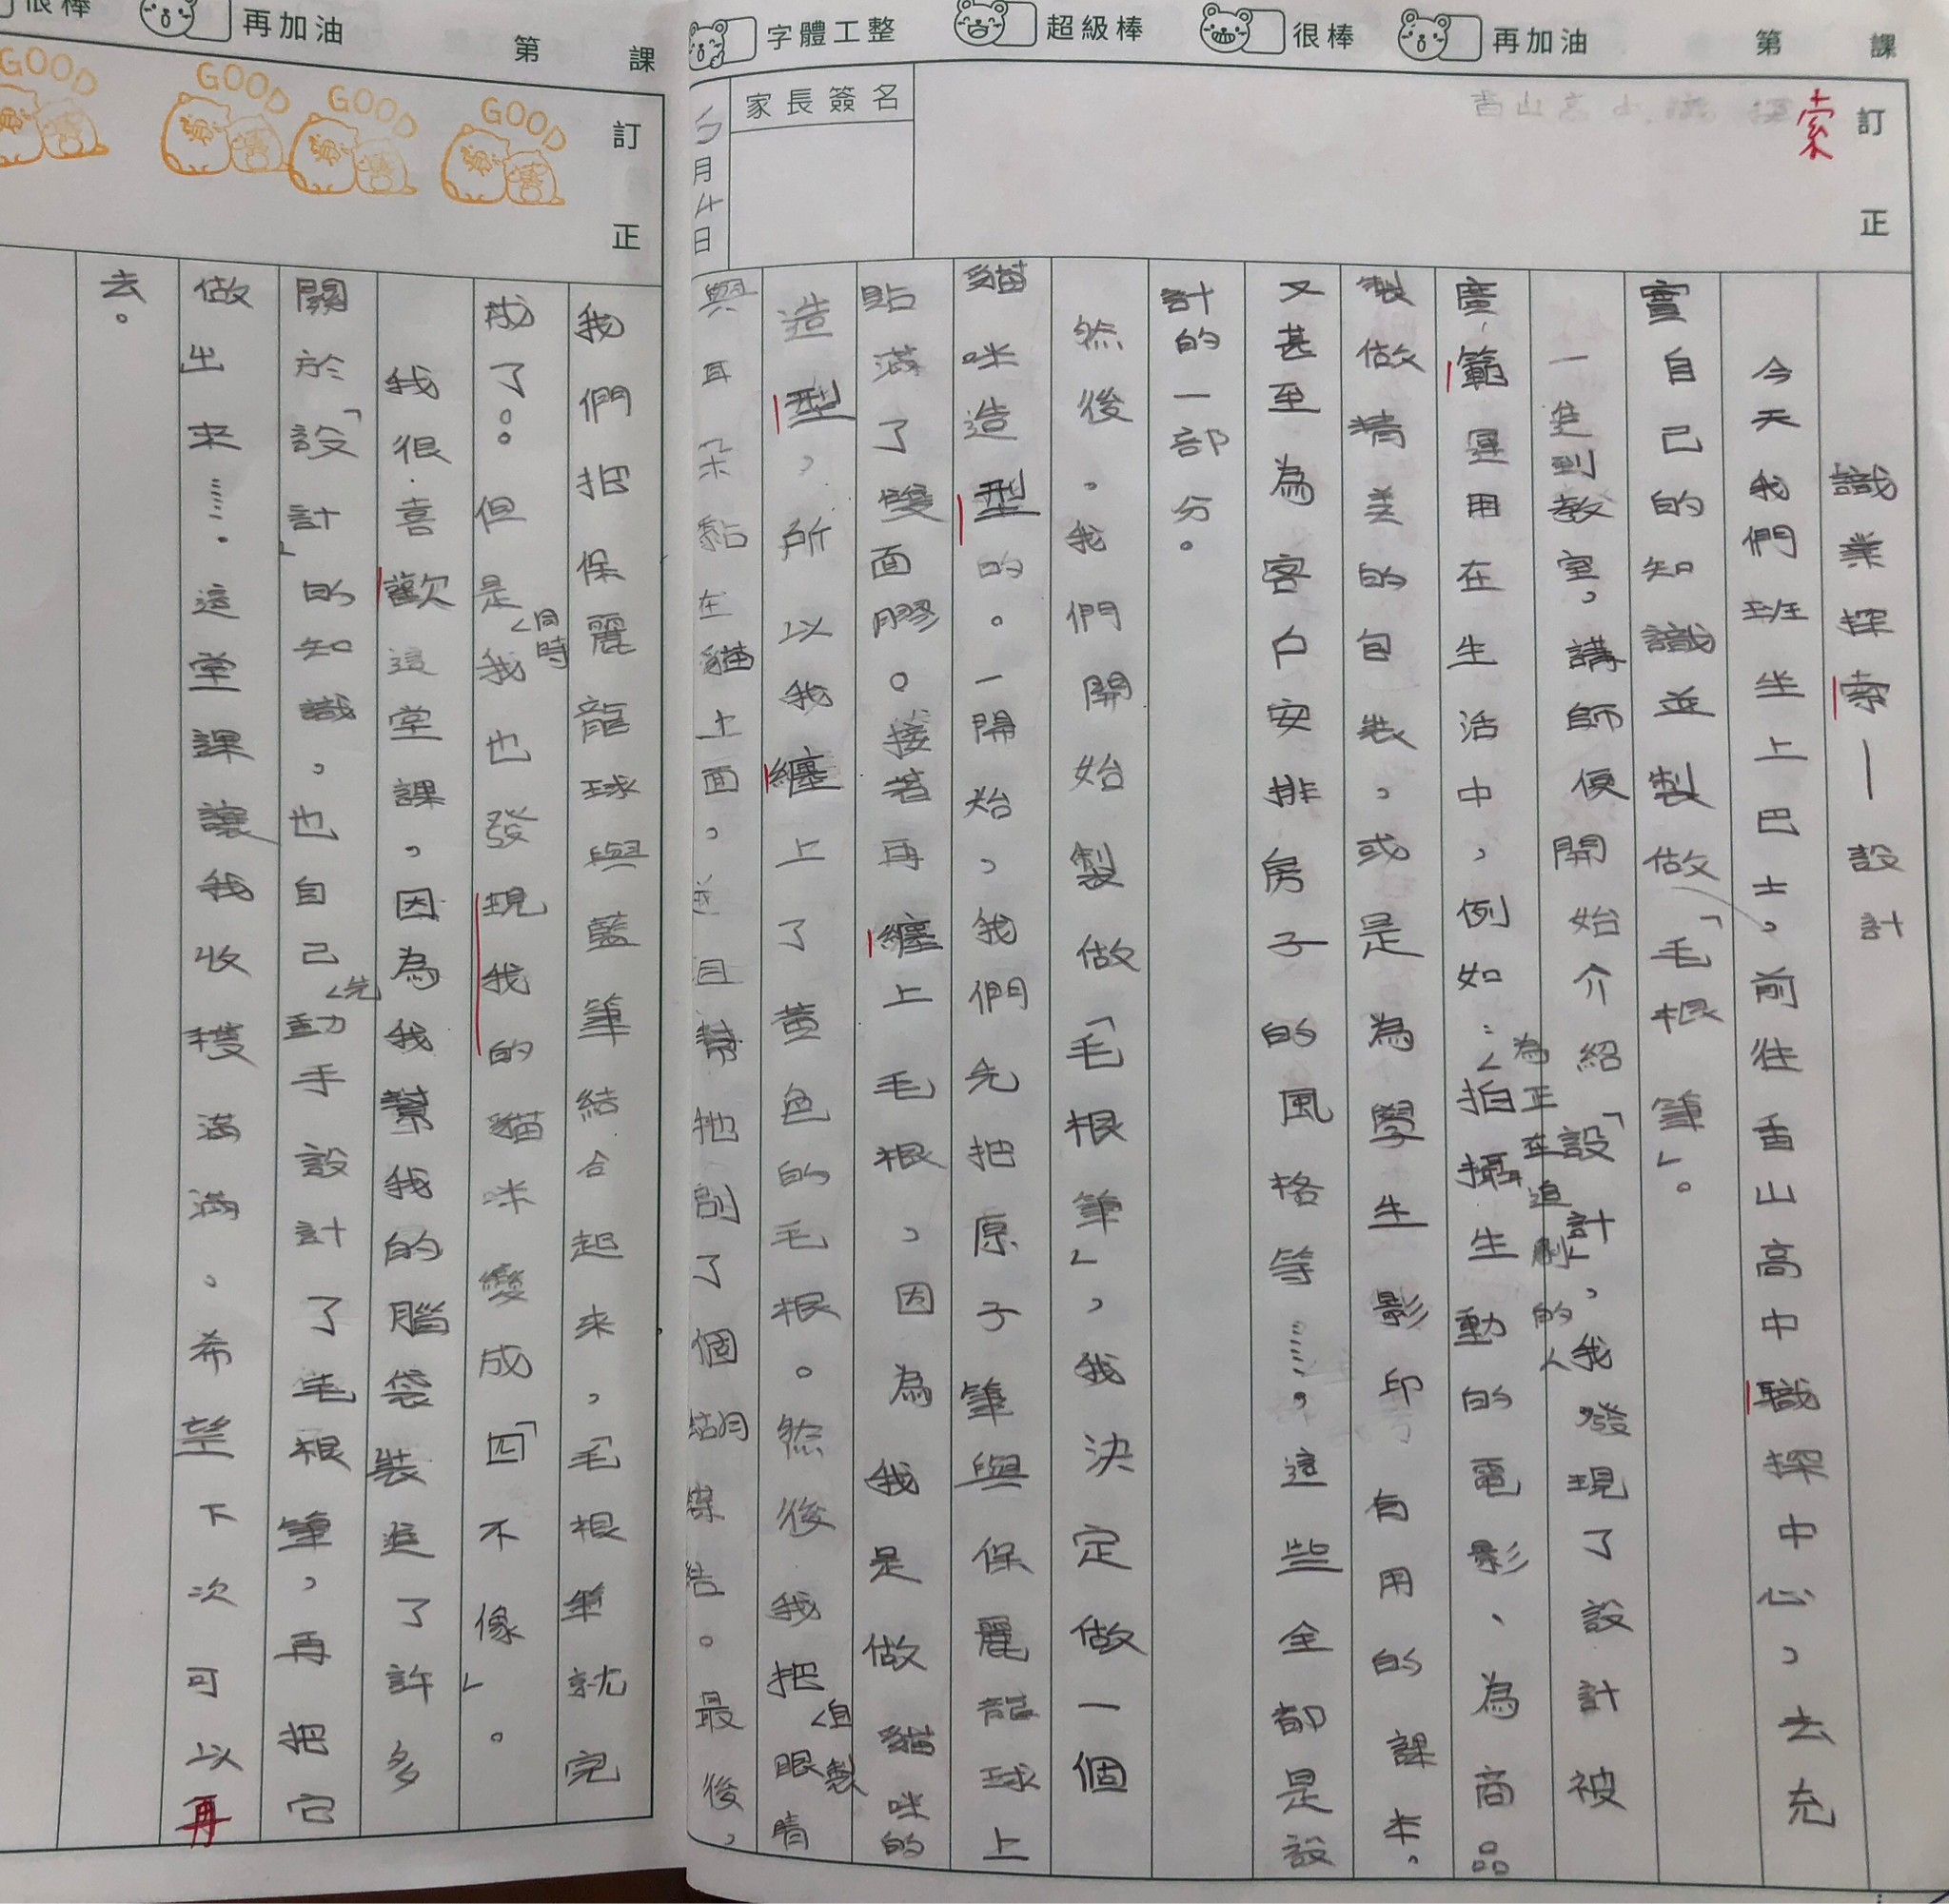 字體工整 超級棒 很棒 再加油 第 課
訂正
索
家長簽名
5月4日
識業探索—設計
今天我們班坐上巴士,前往香山高中職探中心,去充
實自己的知識並製做「毛根筆」。
一進到教室,講師便開始介紹「設計」,我發現了設計被
廣範運用在生活中,例如:拍攝生動的電影、為商品
為正在追劇的人
製做精美的包裝,或是為學生影印有用的課本。
又甚至為客戶安排房子的風格等……,這些全都是設
計的一部分。
然後。我們開始製做「毛根筆」,我決定做一個
貓咪造型的。一開始,我們先把原子筆與保麗龍球上
貼滿了雙面膠。接著再纏上毛根,因為我是做貓咪的
造型,所以我纏上了黃色的毛根。然後我把眼睛
自製
與耳朵黏在貓上面。並且幫牠創了個蝴蝶結。最後,
很棒 再加油 第 課
訂正
GOOD GOOD GOOD GOOD
我們把保麗龍球與藍筆結合起來,「毛根筆就完
成了。但是我也發現我的貓咪變成「四不像」。
同時
我很喜歡這堂課,因為我幫我的腦袋裝進了許多
關於「設計」的知識,也自己動手設計了毛根筆,再把它
先
做出來……。這堂課讓我收穫滿滿。希望下次可以再
去。